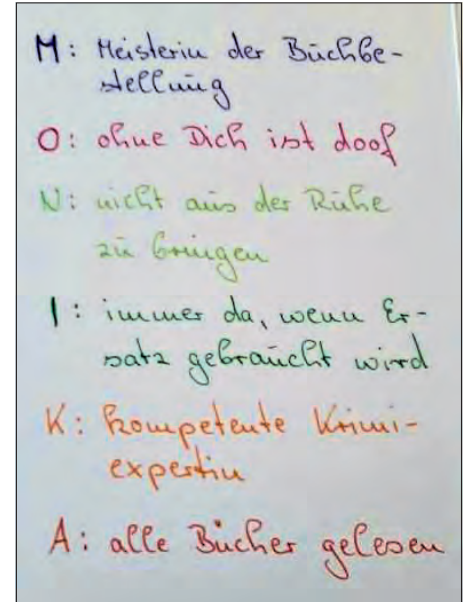 M: Meisterin der Buchbe-
stellung
O: ohne Dich ist doof
N: nicht aus der Ruhe
zu bringen
I: immer da, wenn Er-
satz gebraucht wird
K: kompetente Krimi-
expertin
A: alle Bücher gelesen